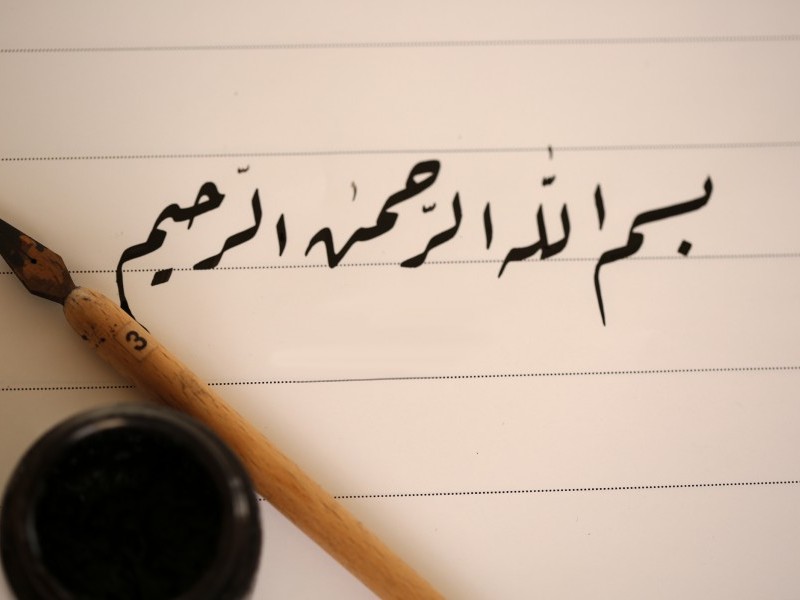 بسم الله الرحمٰن الرّحيم
3